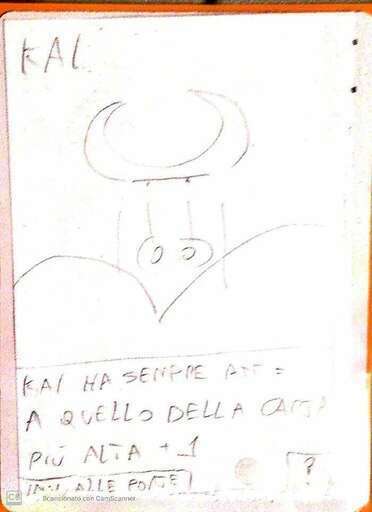 KAI
KAI HA SEMPRE ATT =
A QUELLO DELLA CARTA
PIÙ ALTA + 1
ALLE PORTE
?
CS Scansionato con CamScanner